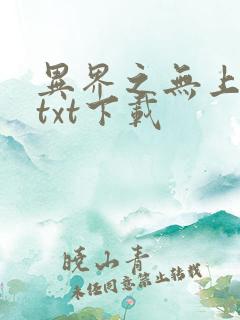 異界之無上
txt下載
曉山青
未经同意禁止转载